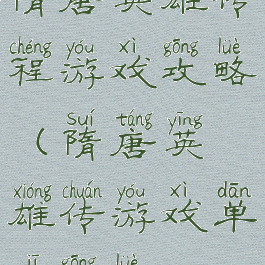 隋唐英雄传
chéng yóu xì gōng lüè
程游戏攻略
suí táng yīng
（隋唐英
xióng chuán yóu xì dān
雄传游戏单
jī gōng lüè